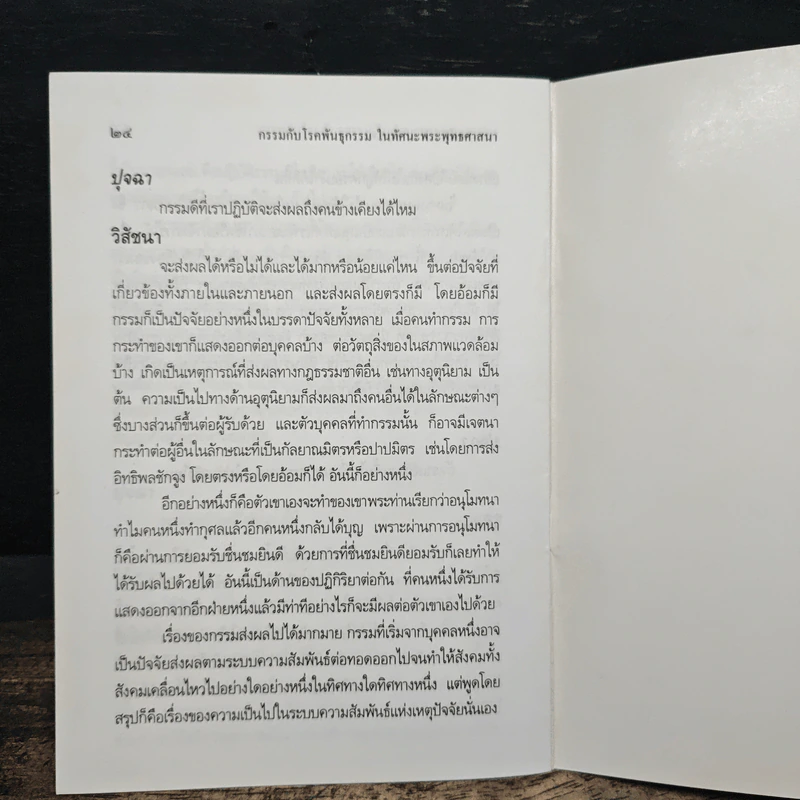 ๒๔ กรรมกับโรคพันธุกรรม ในทัศนะพระพุทธศาสนา
ปุจฉา
กรรมดีที่เราปฏิบัติจะส่งผลถึงคนข้างเคียงได้ไหม
วิสัชนา
จะส่งผลได้หรือไม่ได้และได้มากหรือน้อยแค่ไหน ขึ้นต่อปัจจัยที่
เกี่ยวข้องทั้งภายในและภายนอก และส่งผลโดยตรงก็มี โดยอ้อมก็มี
กรรมก็เป็นปัจจัยอย่างหนึ่งในบรรดาปัจจัยทั้งหลาย เมื่อคนทำกรรม การ
กระทำของเขาก็แสดงออกต่อบุคคลบ้าง ต่อวัตถุสิ่งของในสภาพแวดล้อม
บ้าง เกิดเป็นเหตุการณ์ที่ส่งผลทางกฎธรรมชาติอื่น เช่นทางอุตุนิยาม เป็น
ต้น ความเป็นไปทางด้านอุตุนิยามก็ส่งผลมาถึงคนอื่นได้ในลักษณะต่างๆ
ซึ่งบางส่วนก็ขึ้นต่อผู้รับด้วย และตัวบุคคลที่ทำกรรมนั้น ก็อาจมีเจตนา
กระทำต่อผู้อื่นในลักษณะที่เป็นกัลยาณมิตรหรือปาปมิตร เช่นโดยการส่ง
อิทธิพลชักจูง โดยตรงหรือโดยอ้อมก็ได้ อันนี้ก็อย่างหนึ่ง
อีกอย่างหนึ่งก็คือตัวเขาเองจะทำของเขาพระท่านเรียกว่าอนุโมทนา
ทำไมคนหนึ่งทำกุศลแล้วอีกคนหนึ่งกลับได้บุญ เพราะผ่านการอนุโมทนา
ก็คือผ่านการยอมรับชื่นชมยินดี ด้วยการที่ชื่นชมยินดียอมรับก็เลยทำให้
ได้รับผลไปด้วยได้ อันนี้เป็นด้านของปฏิกิริยาต่อกัน ที่คนหนึ่งได้รับการ
แสดงออกจากอีกฝ่ายหนึ่งแล้วมีท่าทีอย่างไรก็จะมีผลต่อตัวเขาเองไปด้วย
เรื่องของกรรมส่งผลไปได้มากมาย กรรมที่เริ่มจากบุคคลหนึ่งอาจ
เป็นปัจจัยส่งผลตามระบบความสัมพันธ์ต่อทอดออกไปจนทำให้สังคมทั้ง
สังคมเคลื่อนไหวไปอย่างใดอย่างหนึ่งในทิศทางใดทิศทางหนึ่ง แต่พูดโดย
สรุปก็คือเรื่องของความเป็นไปในระบบความสัมพันธ์แห่งเหตุปัจจัยนั่นเอง